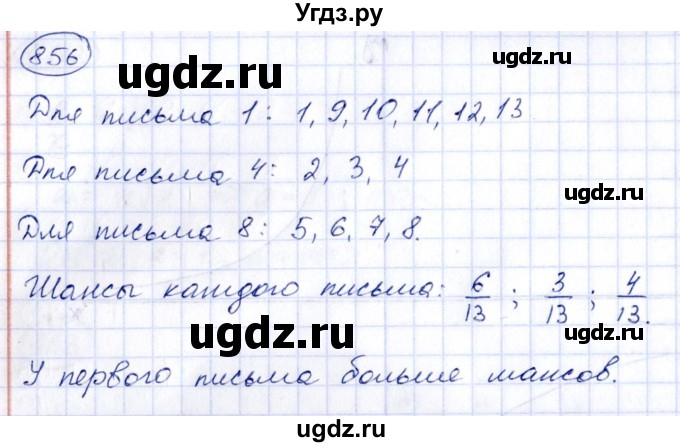 Угдз.ру
856
ugdz.ru
ugdz.ru
Для письма 1: 1, 9, 10, 11, 12, 13
ugdz.ru
ugdz.ru
Для письма 4: 2, 3, 4
Для письма 8: 5, 6, 7, 8.
ugdz.ru
ugdz.ru
Шансы каждого письма: 6/13; 3/13; 4/13.
ugdz.ru
ugdz.ru
У первого письма больше шансов.
ugdz.ru
ugdz.ru